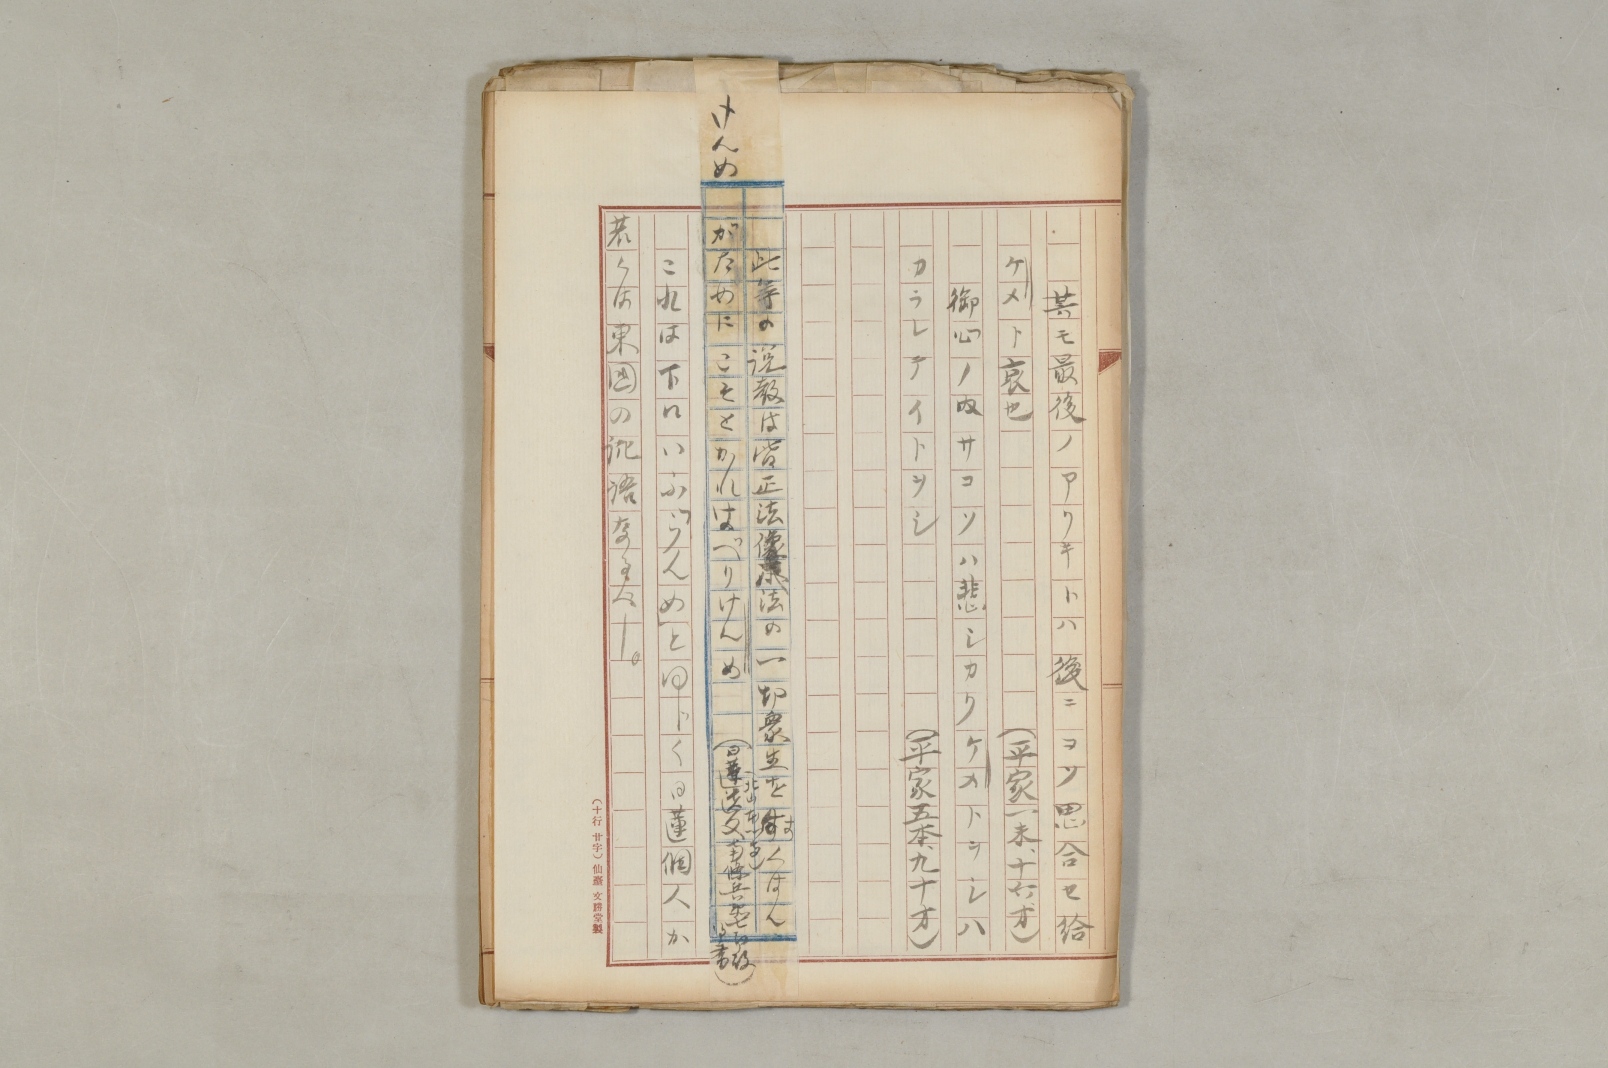 其モ最後ノアリキトハ後ニコソ思合セ給
ケメト哀也　（平家一末、十六オ）
御心ノ内サコソハ悲シカリケメトヲシハ
カラレテイトヲシ　（平家五本、九十オ）
けんめ
此等の説教は皆正法像法の一切衆生をすくはん
がためにこそとかれはべりけんめ
（日蓮遺文
これは下にいふ「らんめ」と同じく日蓮個人か
若くは東国の訛語なるべし。
（十行 廿字）仙臺 文勝堂製